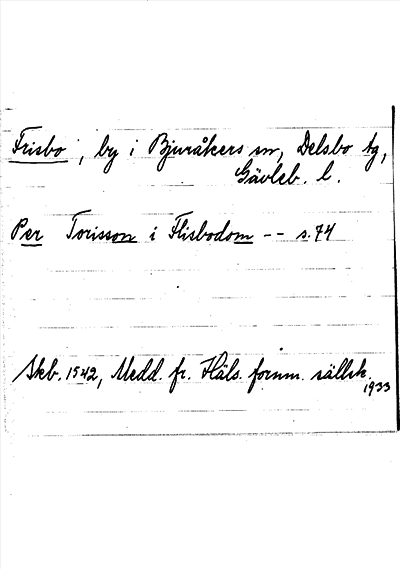 Frisbo, by i Bjuråkers sn, Delsbo tg,
Gävleb. l.
Per Torisson i Flisbodom -- s. 74
Skb. 1542, Medd. fr. Häls. fornm. sällsk.
1933